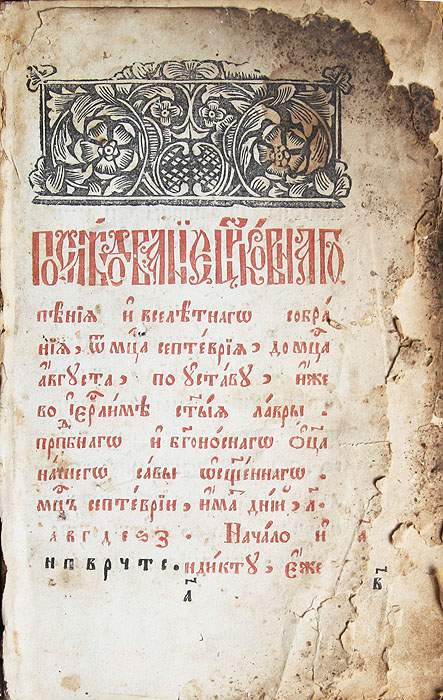 Послѣдованїе црⷪ҇ковнагѡ
пѣнїя и҆ вселѣ́тнагѡ собра́
нїя, ѿ мцⷭ҇а септе́врїя, до мцⷭ҇а
а҆́вгꙋста, по ᲂу҆ста́вꙋ, и҆́же
во і҆ер҇ли́мѣ ст҃ы́ѧ ла́вры.
прпⷣбнагѡ и҆ бг҃оно́снагѡ ѻ҆ц҃а̀
на́шегѡ са́вы ѡ҆сщ҃е́ннагѡ.
мцⷭ҇ъ септе́врїи, и҆́ма дні́й, л҃.
а в г д е ѕ з . Нача́ло и
н п в р ч т с . ндикту, є҆́же